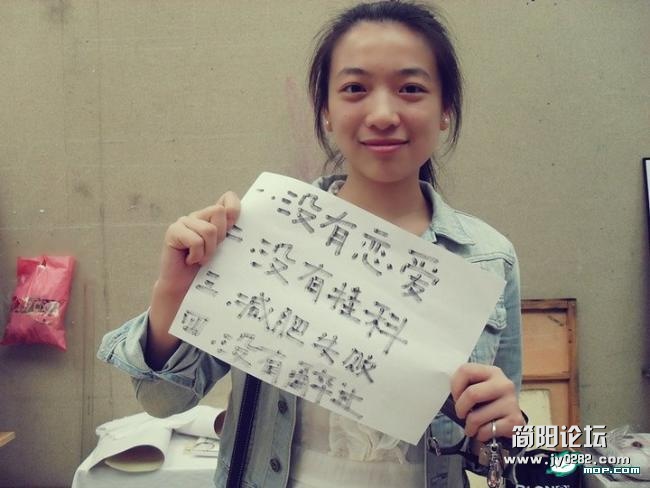 一.没有恋爱
二.没有挂科
三.减肥失败
四.没有醉过
简阳论坛
www.jy0282.com
mop.com